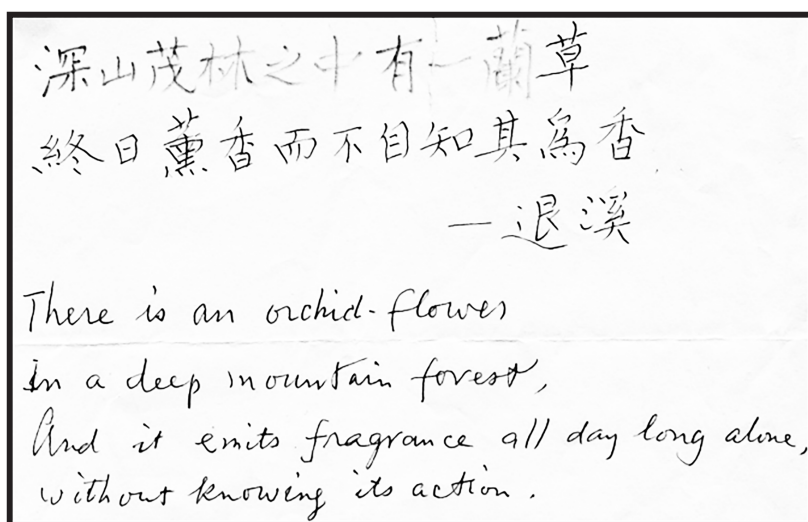 深山茂林之中有一蘭草
終日薰香而不自知其爲香
—退溪
There is an orchid-flower
In a deep mountain forest,
And it emits fragrance all day long alone,
without knowing its action.